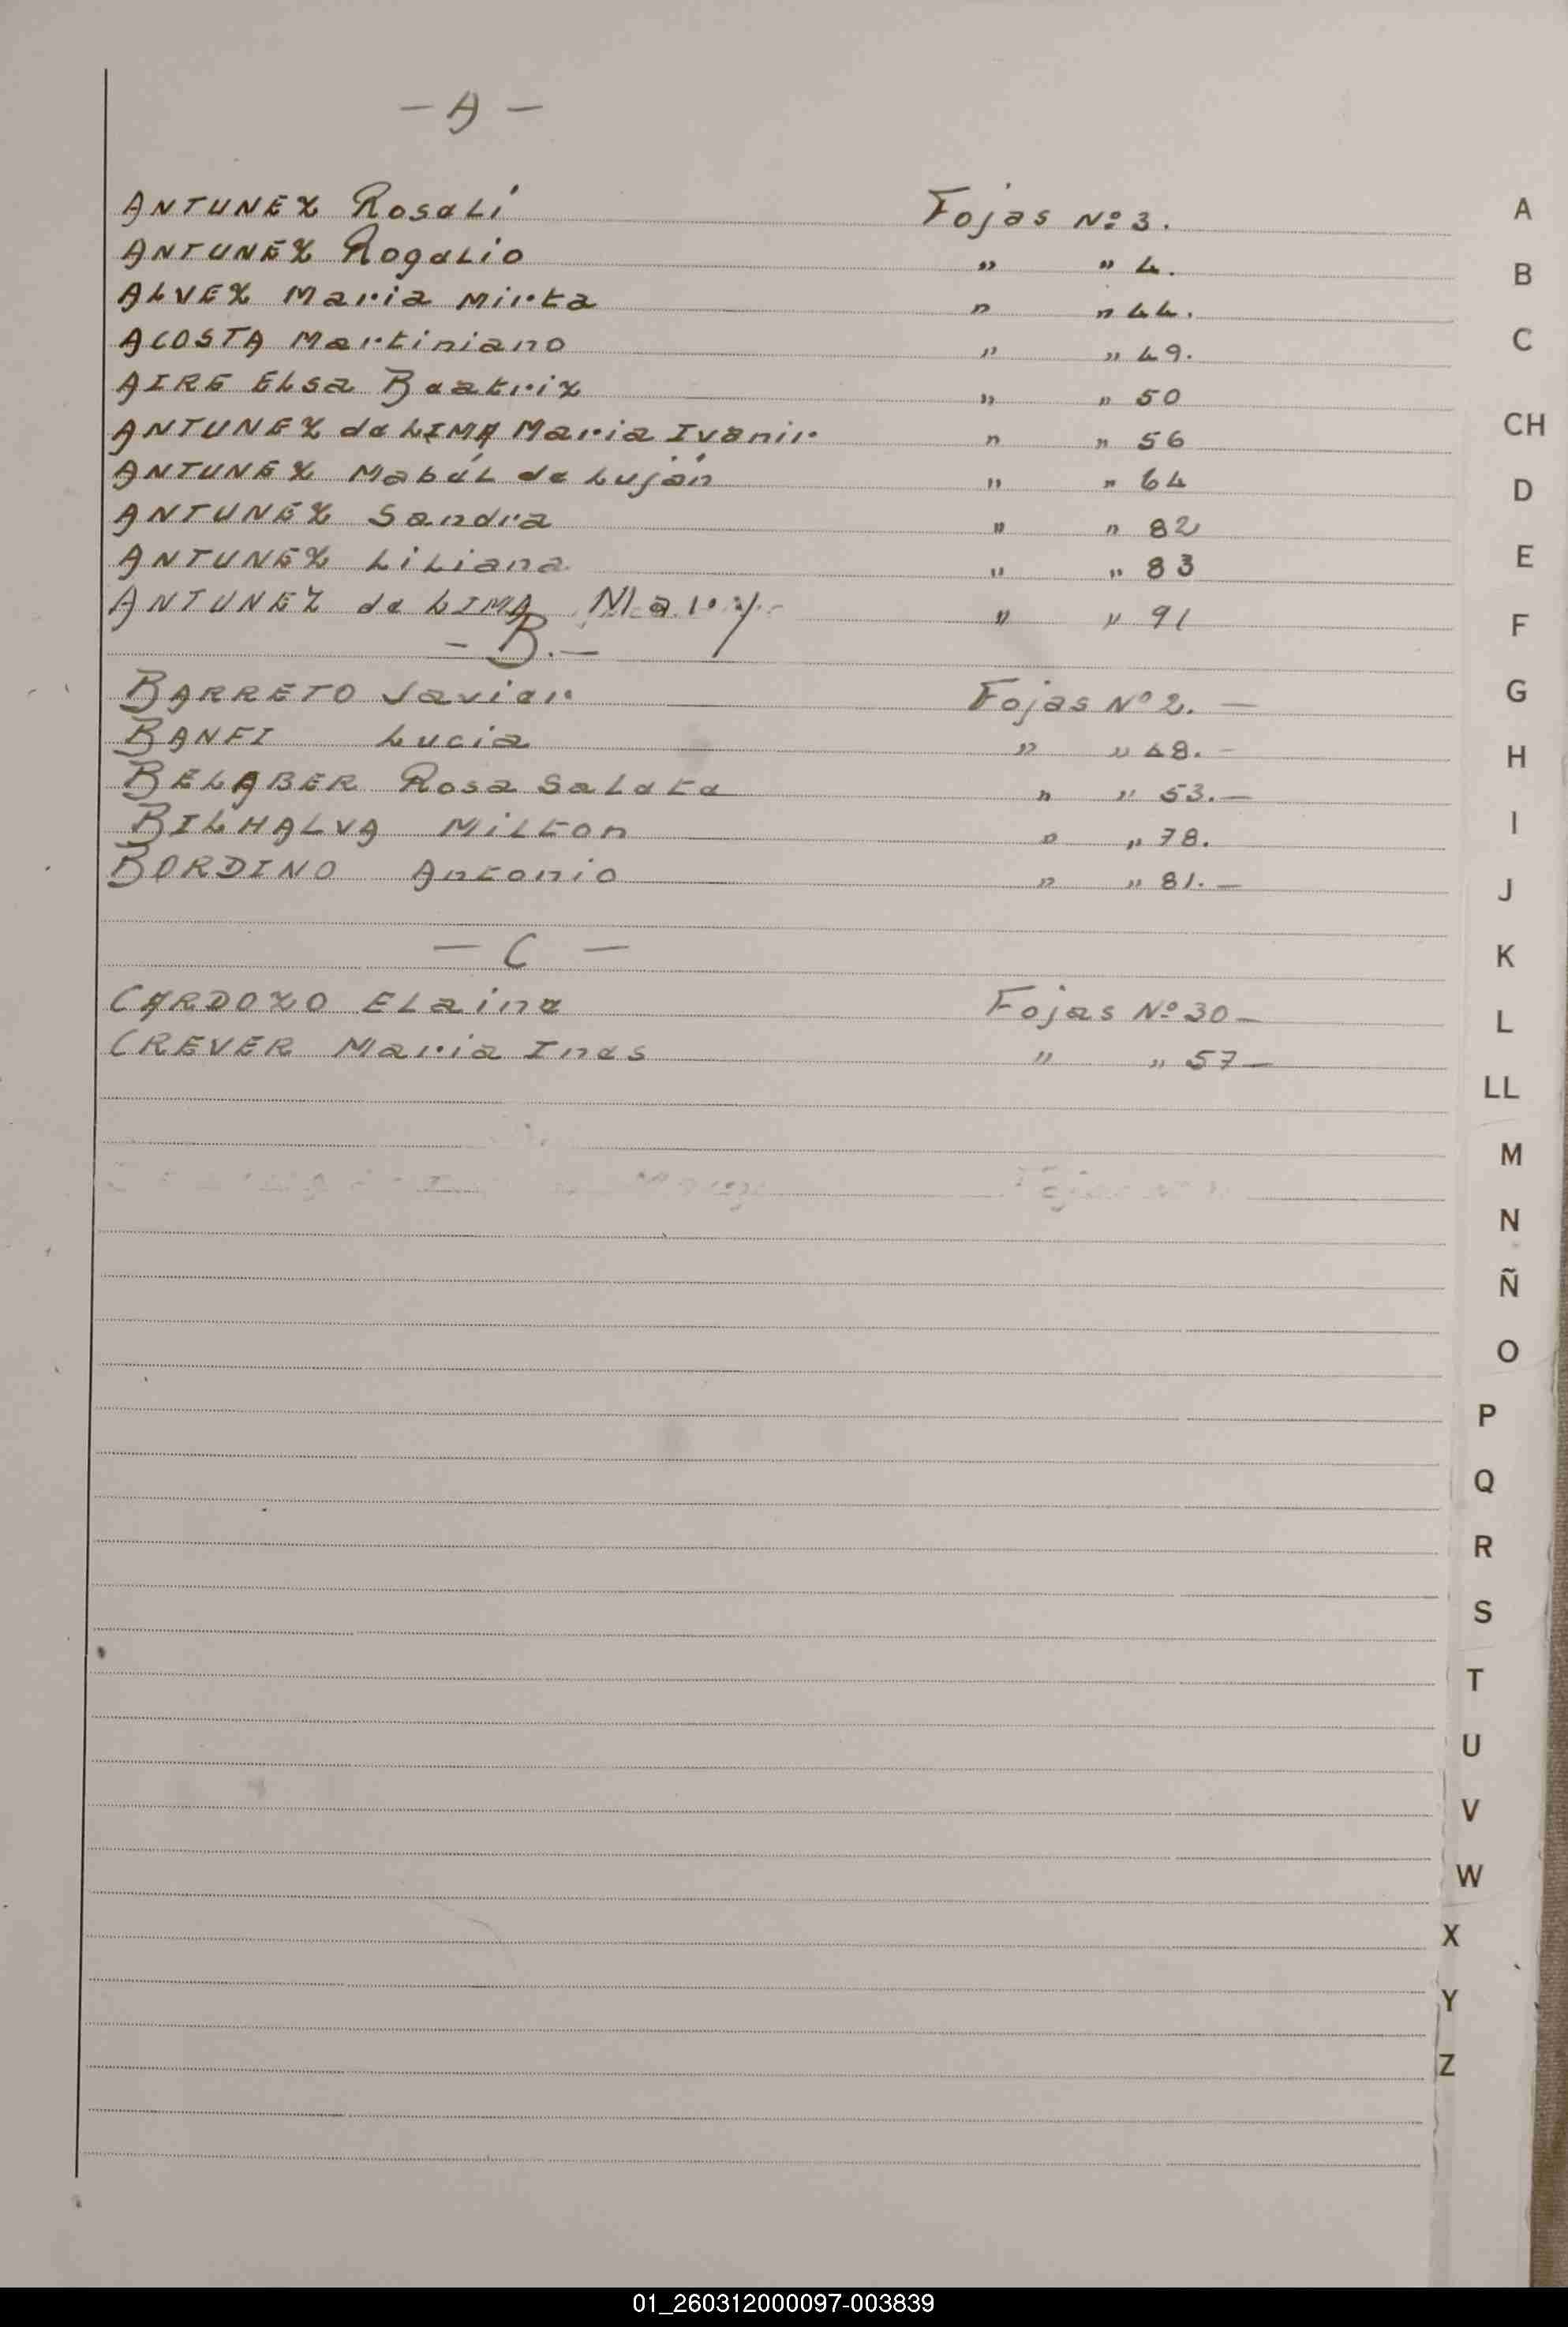 - A -
ANTUNEZ Rosalí Fojas Nº 3.
ANTUNEZ Rogelio " " 4.
ALVEZ Maria Mirta " " 44.
ACOSTA Martiniano " " 49.
AIRE Elsa Beatriz " " 50
ANTUNEZ de LIMA Maria Ivanir " " 56
ANTUNEZ Mabél de Luján " " 64
ANTUNEZ Sandra " " 82
ANTUNEZ Liliana " " 83
ANTUNEZ de LIMA Mary " " 91
- B. -
BARRETO Javier Fojas Nº 2. -
BANFI Lucia " " 48. -
BELABER Rosa Salete " " 53. -
BILHALVA Milton " " 78.
BORDINO Antonio " " 81. -
- C -
CARDOZO Elaine Fojas Nº 30 -
CREVER Maria Ines " " 57 -
A
B
C
CH
D
E
F
G
H
I
J
K
L
LL
M
N
Ñ
O
P
Q
R
S
T
U
V
W
X
Y
Z
01_260312000097-003839